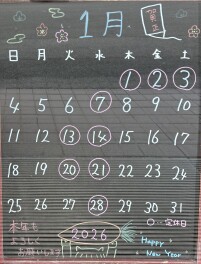 1月
賀正
日 月 火 水 木 金 土
1 2 3
4 5 6 7 8 9 10
11 12 13 14 15 16 17
18 19 20 21 22 23 24
25 26 27 28 29 30 31
○…定休日
本年も
よろしく
お願いします
2026
Happy
New Year